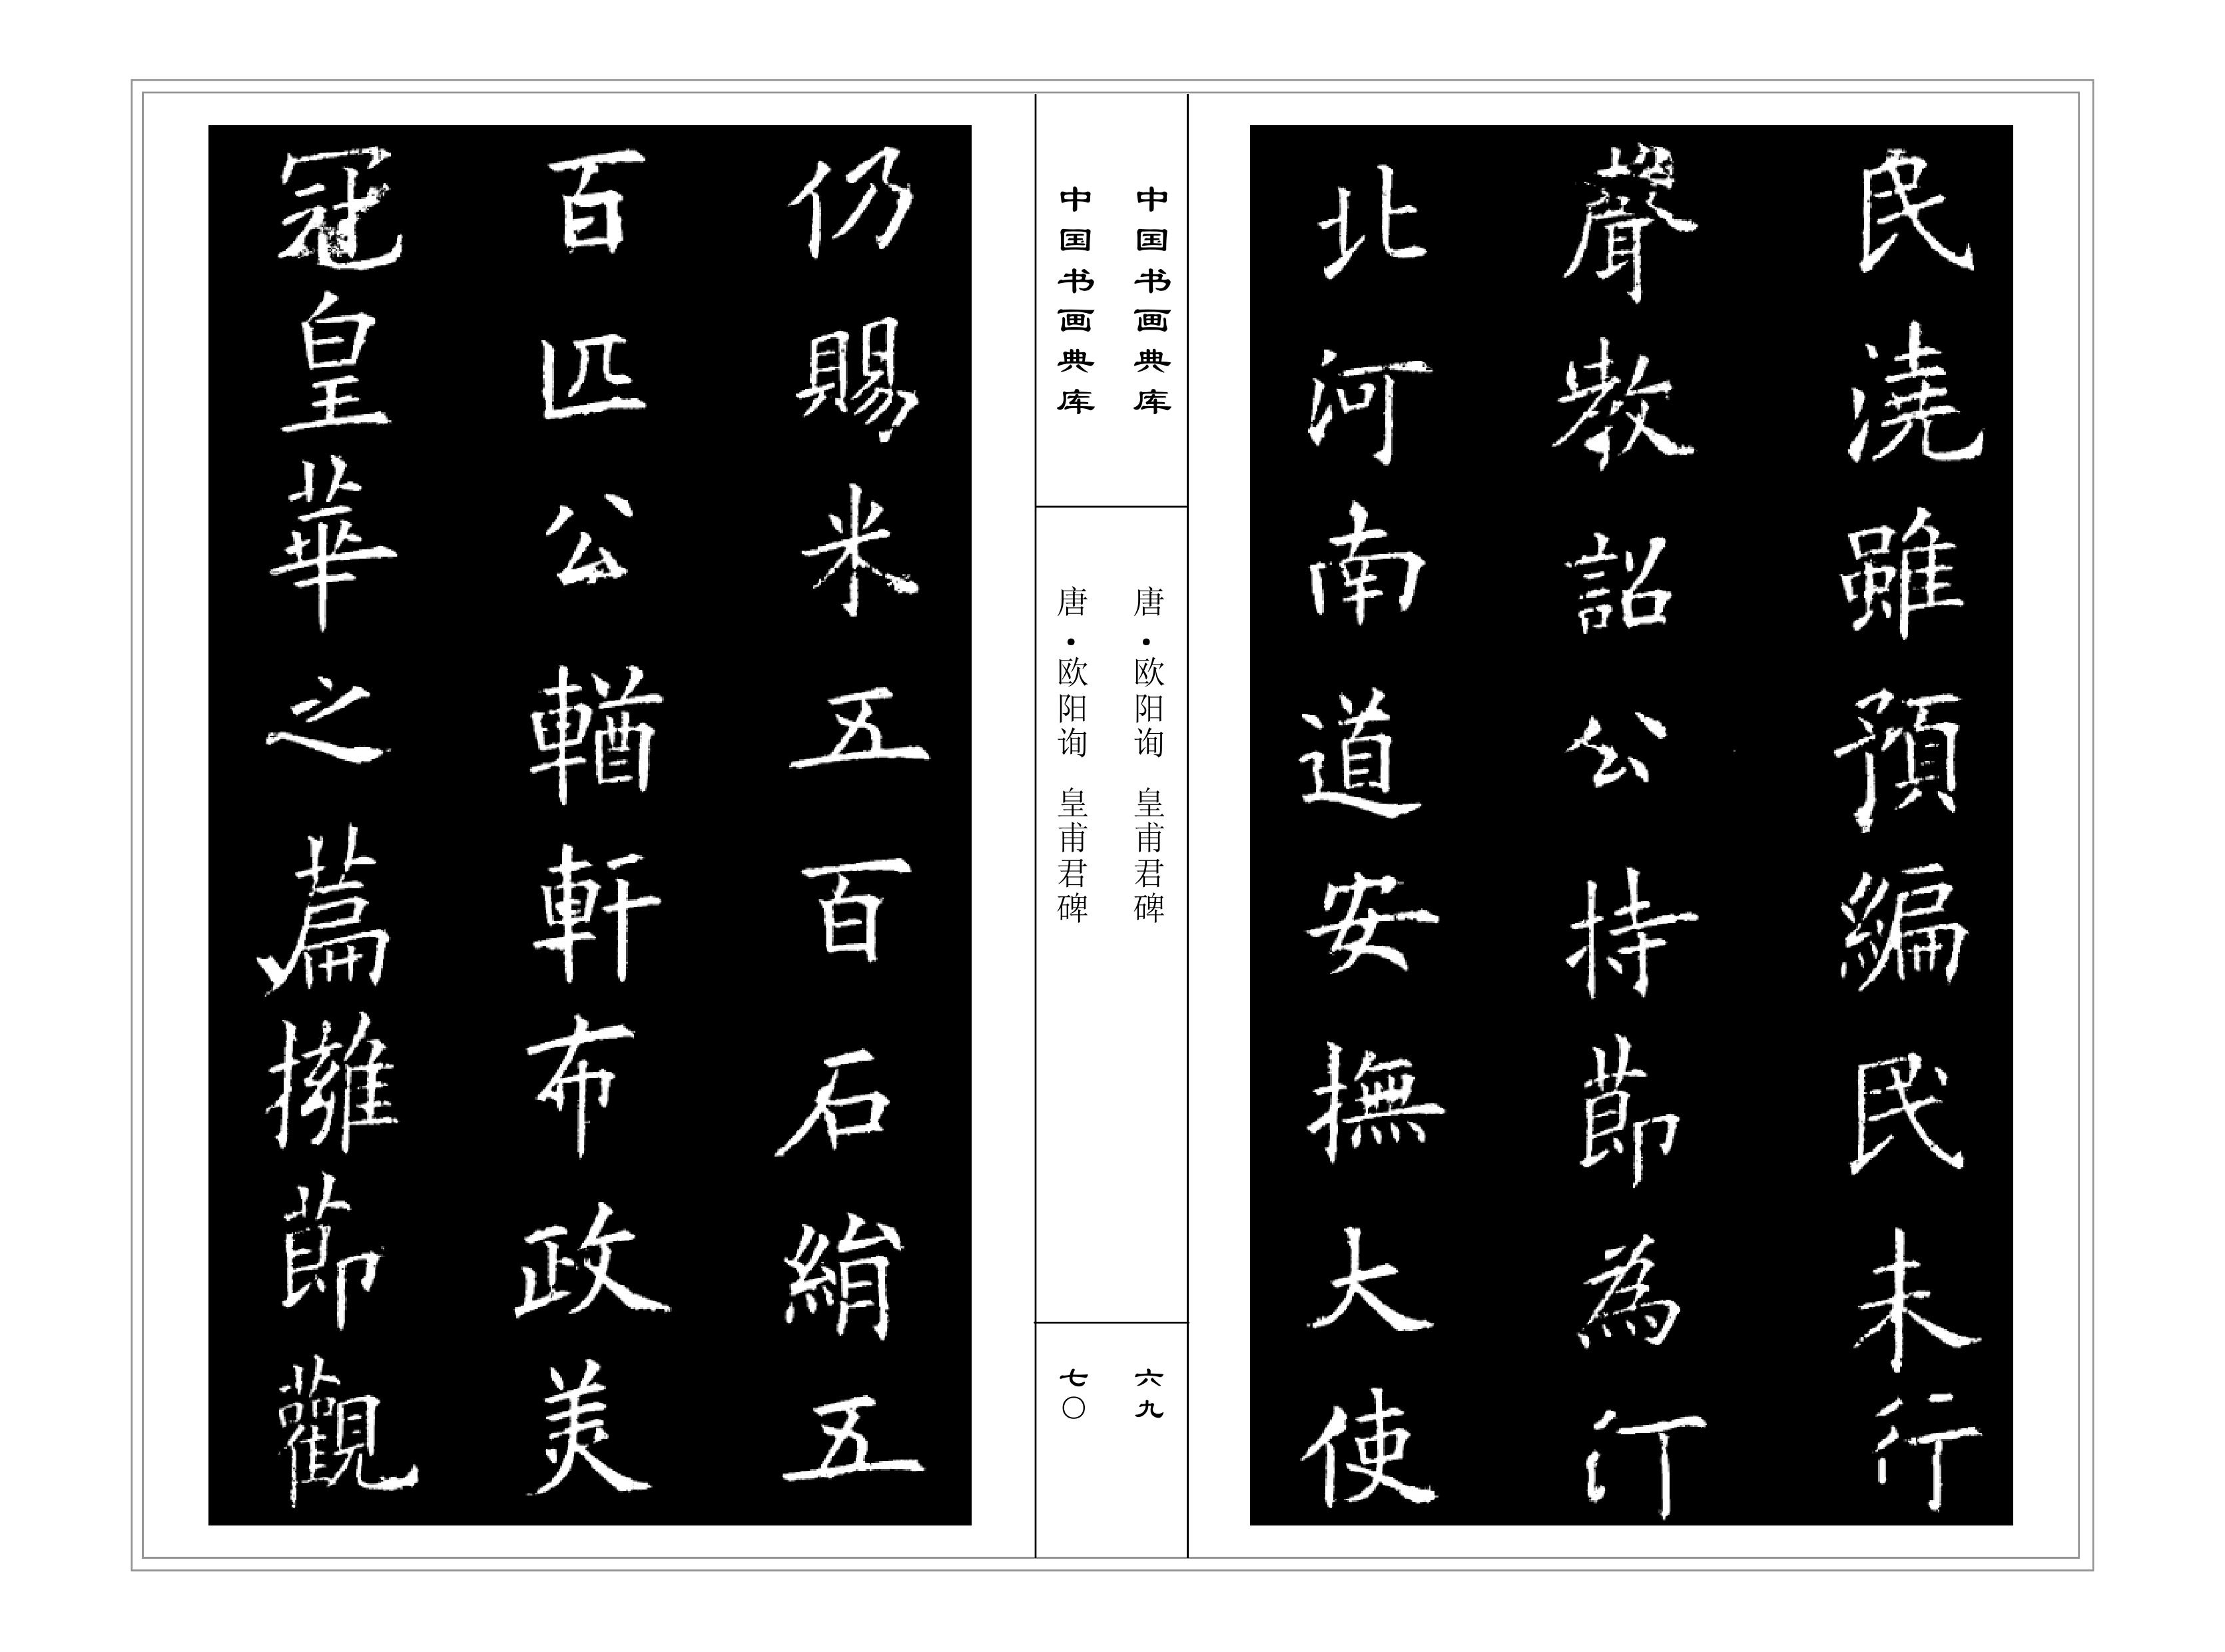 民澆雖預編民未行
聲教詔公持節為河
北河南道安撫大使
中国书画典库
唐·欧阳询 皇甫君碑
六九
中国书画典库
唐·欧阳询 皇甫君碑
七〇
仍賜米五百石絹五
百匹公輶軒布政美
冠皇華之篇擁節觀